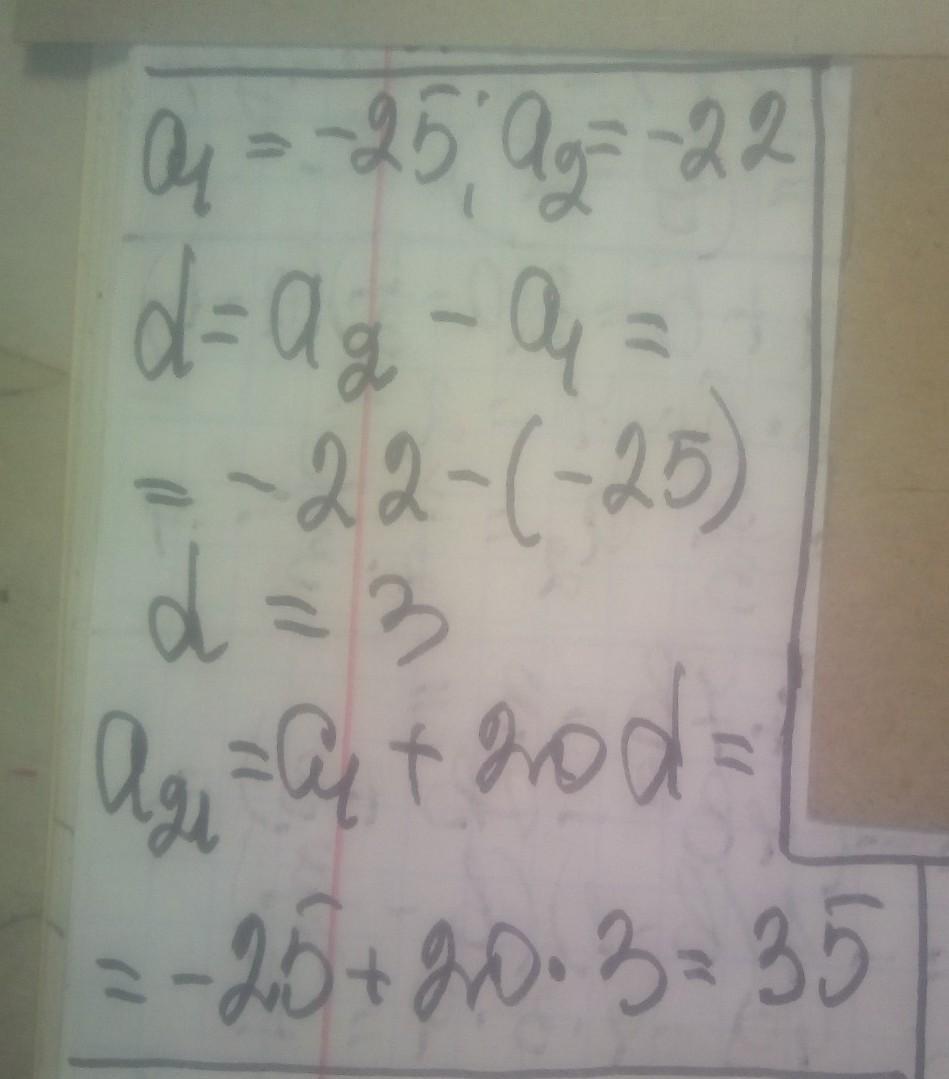 a₁ = -25; a₂ = -22
d = a₂ - a₁ =
= -22 - (-25)
d = 3
a₂₁ = a₁ + 20d =
= -25 + 20 · 3 = 35